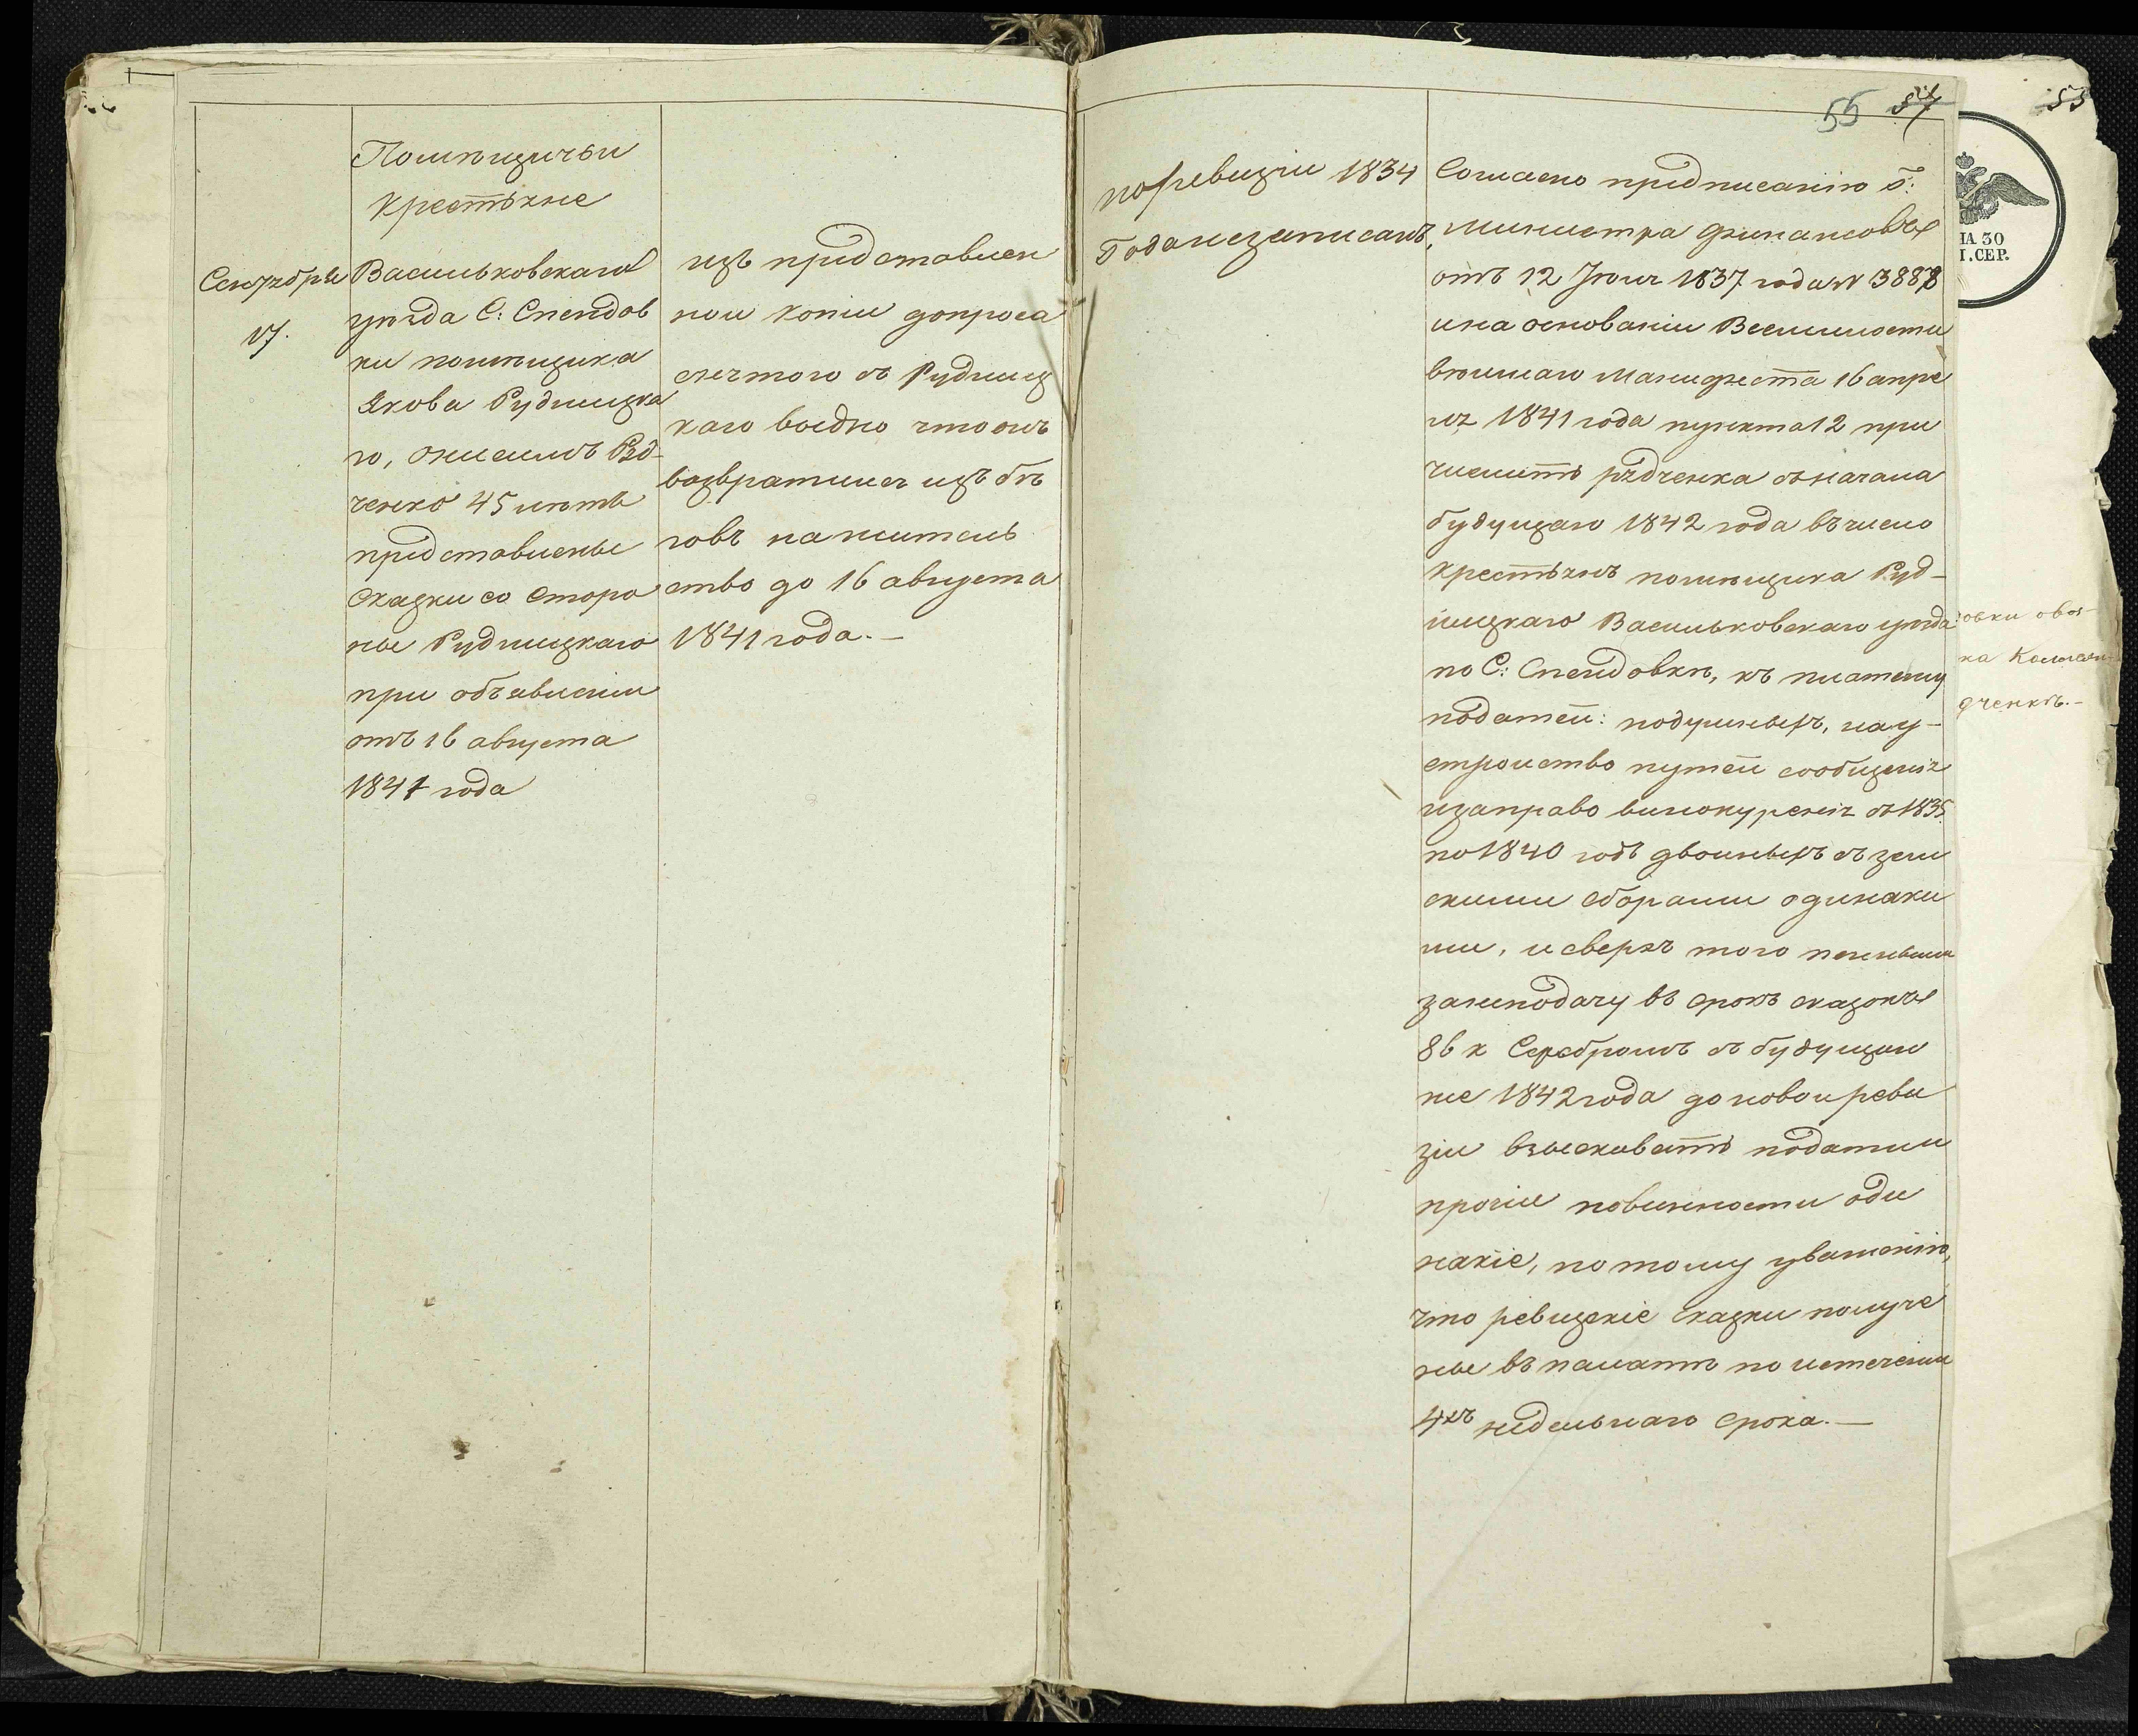 Помѣщичьи
крестьяне
Сентября
17.
Васильковскаго
уѣзда С: Спендов
ки помѣщика
Якова Рудницка
го,
ченко 45 лѣтъ
представлены
сказки со сторо
ны Рудницкаго
при объявленіи
отъ 16 августа
1841 года
изъ представлен
ной копіи допроса
снятого съ Рудниц
каго видно что онъ
возвратился изъ бѣ
говъ на житель
ство до 16 августа
1841 года. —
55 57
по ревизіи 1834
года незаписанъ,
Согласно предписанію Г:
Министра Финансовъ
отъ 12 Іюля 1837 года № 3888
и на основаніи Всемилости
вѣйшаго Манифеста 16 апре
ля 1841 года пункта 12 при
числить рѣдченка съ начала
будущаго 1842 года въ число
крестьянъ помѣщика Руд-
ницкаго Васильковскаго уѣзда
по С: Спендовкѣ, къ платежу
податей: подушныхъ, на у-
стройство путей сообщенія
и за право винокуренія съ 1835
по 1840 годъ двойныхъ съ зем
скими сборами одинаки
ми, и сверхъ того пенными
за неподачу въ срокъ сказокъ
86 к Серебромъ съ будущаго
же 1842 года до новой реви
зіи взыскивать подати и
прочіе повинности оди
накіе, по тому уваженію,
что ревизскіе сказки получе
ны въ палатѣ по истеченіи
4хъ недельнаго срока. —
55
НА 30
СЕР.
овки
на
дченкѣ. —